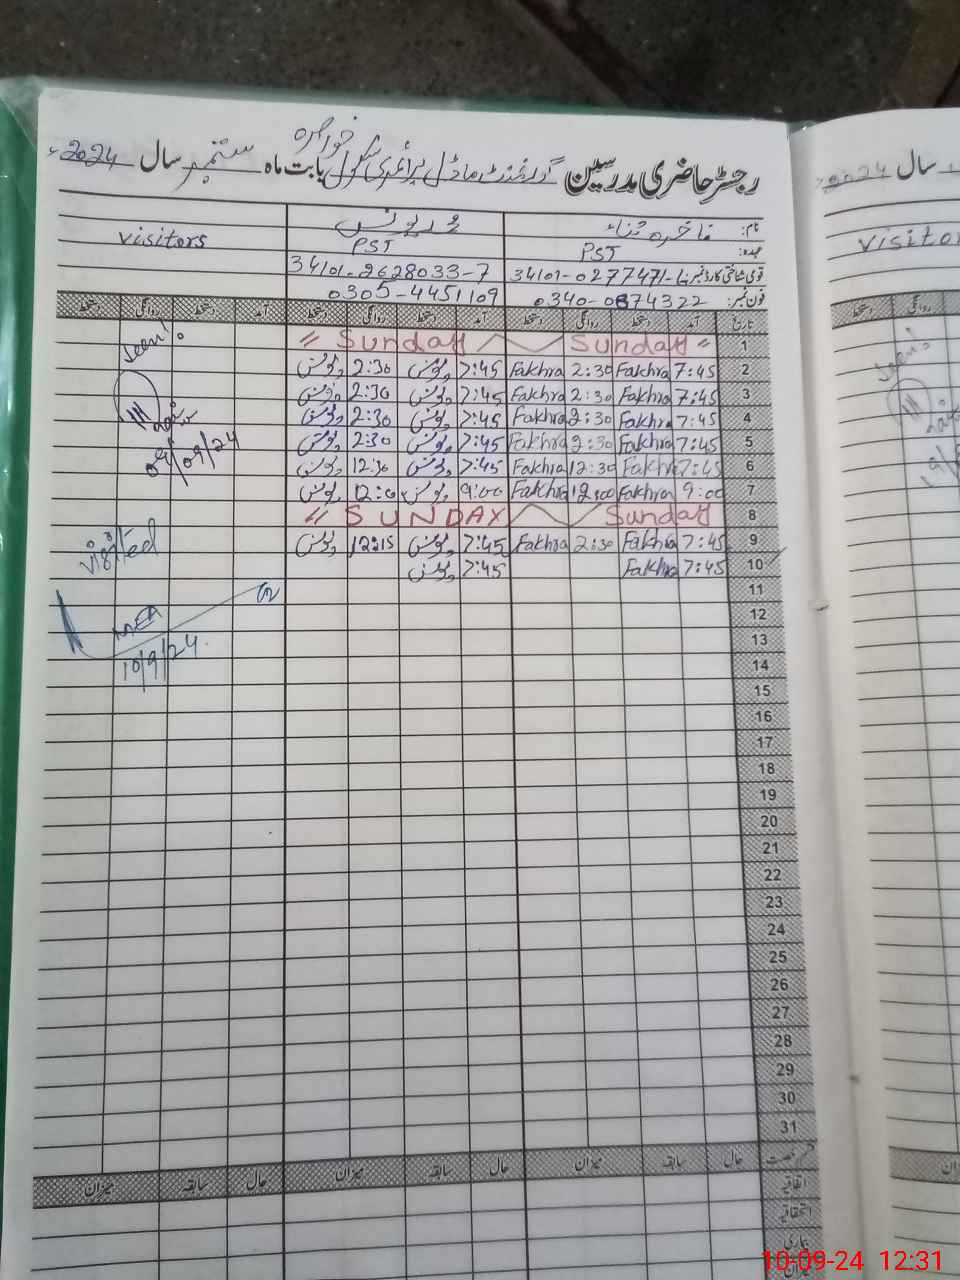 رجسٹر حاضری مدرسین گورنمنٹ ماڈل پرائمری سکول بابت ماہ ستمبر سال 2024ء
نام: فاخرہ ثناء یونس visitors
عہدہ: PST PST
قومی شناختی کارڈ نمبر: 34101-2628033-7
فون نمبر: 0305-4451109
تاریخ آمد دستخط روانگی دستخط آمد دستخط روانگی دستخط آمد دستخط روانگی دستخط
1 " Sunday Sunday "
2 7:45 Fakhra 2:30 Fakhra 7:45 یونس 2:30 یونس
3 7:45 Fakhra 2:30 Fakhra 7:45 یونس 2:30 یونس
4 7:45 Fakhra 2:30 Fakhra 7:45 یونس 2:30 یونس
5 7:45 Fakhra 2:30 Fakhra 7:45 یونس 2:30 یونس
6 7:45 Fakhra 12:30 Fakhra 7:45 یونس 12:30 یونس
7 9:00 Fakhra 12:00 Fakhra 9:00 یونس 12:00 یونس
8 " SUNDAY Sunday
9 7:45 Fakhra 2:30 Fakhra 7:45 یونس 12:15 یونس
10 7:45 Fakhra 7:45 یونس
11
12
13
14
15
16
17
18
19
20
21
22
23
24
25
26
27
28
29
30
31
Seen!
09/09/24
visited
MEA
10/9/24
حال سابقہ میزان حال سابقہ میزان حال سابقہ میزان
اتفاقیہ
استحقاقیہ
بیماری
میزان
سال 2024
Visito
Seen!
10-09-24 12:31